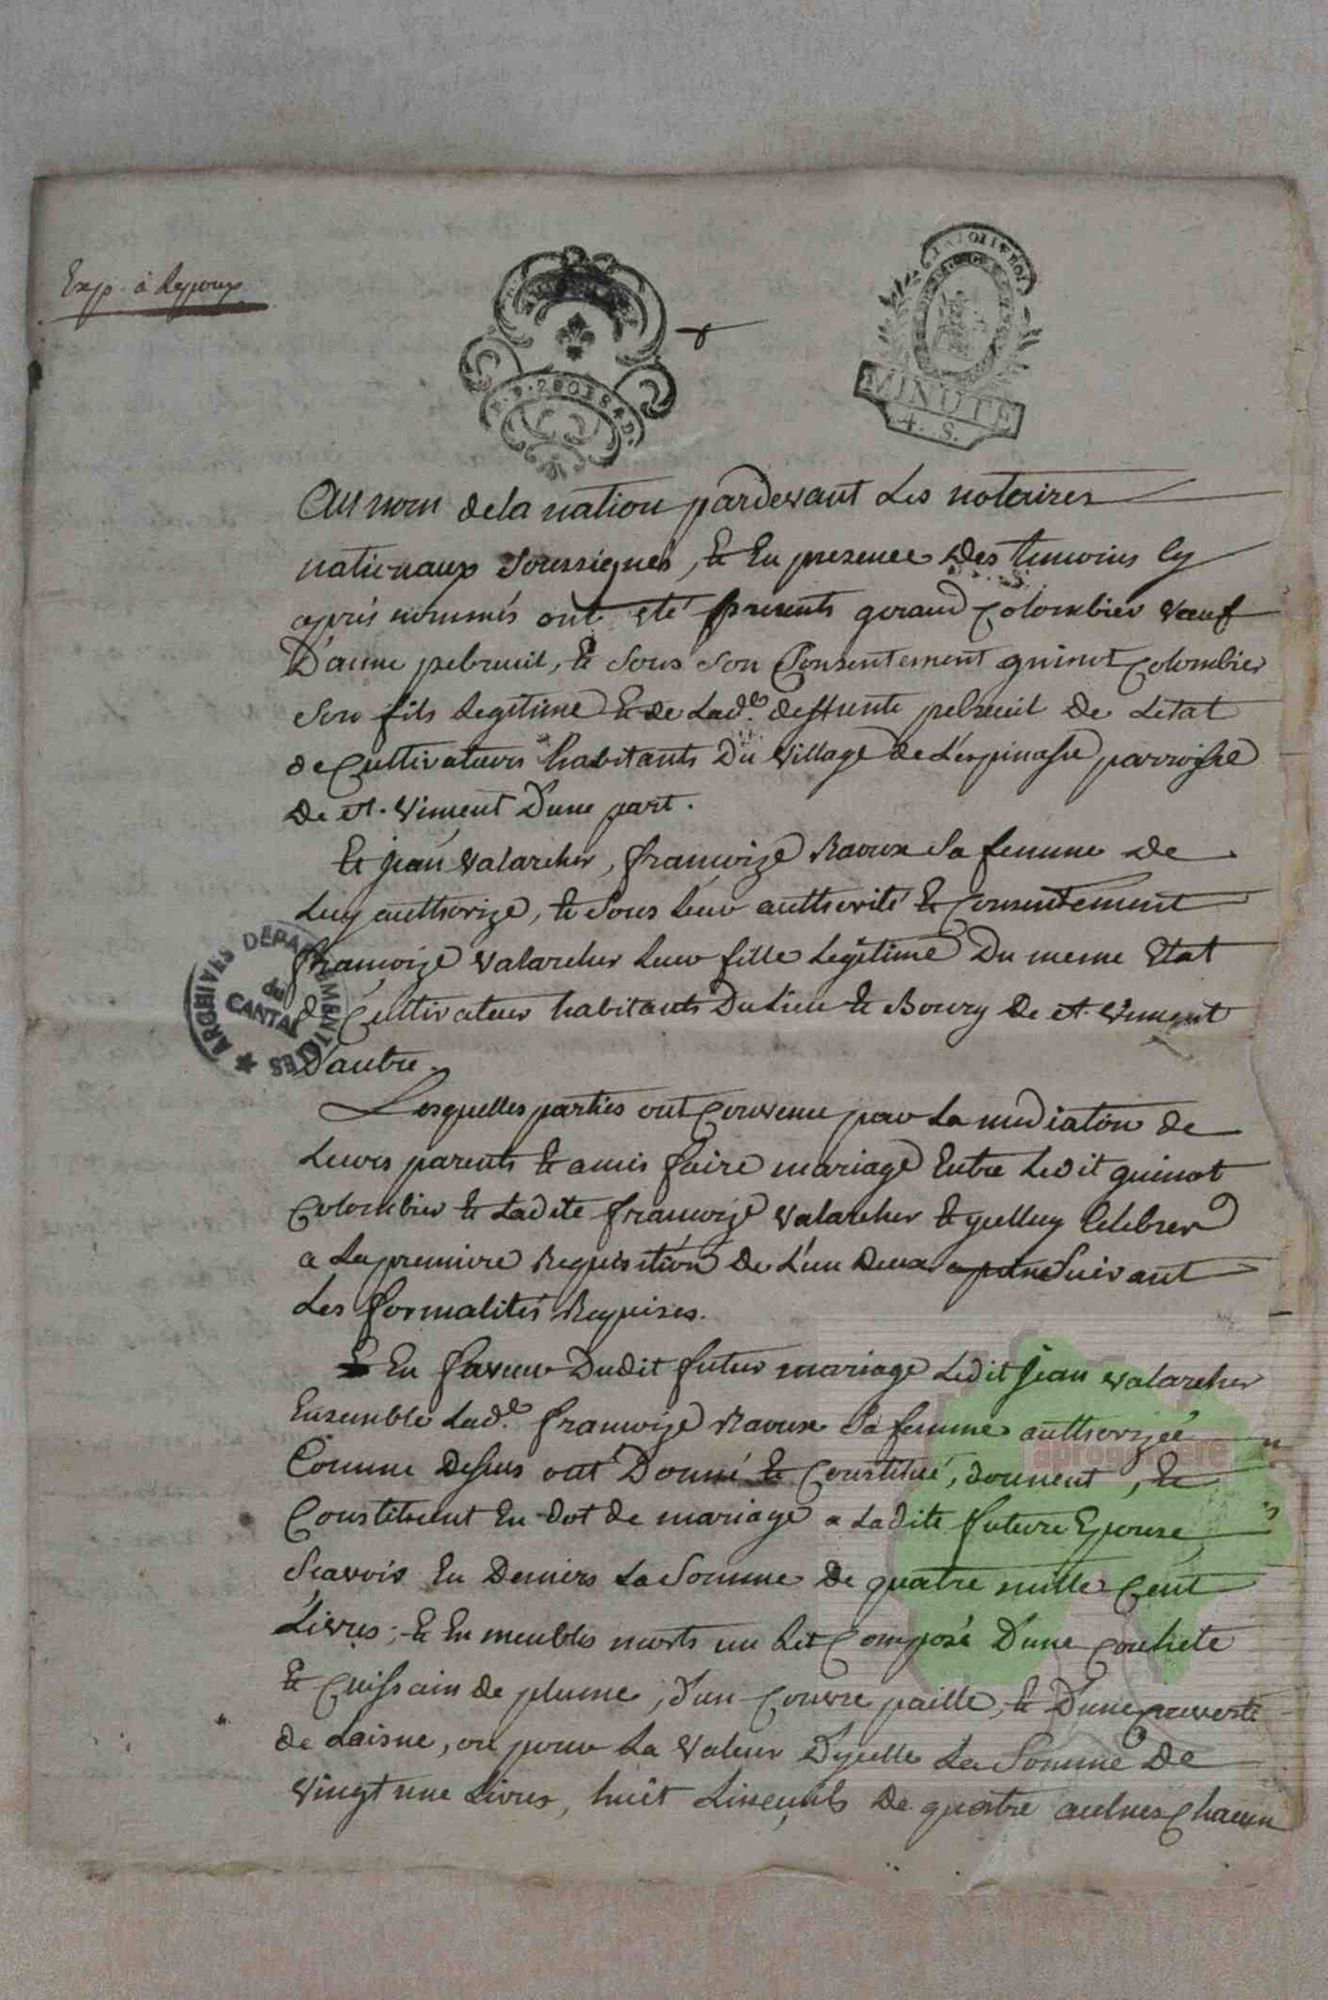 Exp. à Lepoux
MINUTE
4. S.
Au nom de la nation pardevant Les notaires
nationaux Soussignés, & En presence Des temoins Cy
après nommés ont été presents geraud Colombier veuf
D'anne pebreuil, & Sous Son Consentement guinot Colombier
Son fils Legitime & de Lad.e deffunte pebreuil De Letat
de Cultivateurs habitants Du village de Lespinasse parroisse
De st. Vincent D'une part.
& jean valarcher, françoize Raoux Sa femme De
Luy authorizé, & Sous Leur authorité & Consentement
françoize valarcher Leur fille Legitime Du meme Etat
de Cultivateur habitants Du Lieu & Bourg De st. Vincent
D'autre.
Lesquelles parties ont Convenu par La mediation de
Leurs parents & amis faire mariage Entre Ledit guinot
Colombier & Ladite françoize valarcher & yselluy Celebrer
a La premiere Requisition De L'un Deux Suivant
Les formalités Requises.
En faveur Dudit futur mariage Ledit Jean valarcher
Ensemble Lad.e françoize Raoux Sa femme authorizée
Comme Dessus ont Donné & Constitué, donnent, &
Constituent En dot de mariage a Ladite future Epouse
Scavoir En Deniers La Somme De quatre mille Cent
Livres; & En meubles morts un Lit Composé D'une Couchete
& Cuissain de plume, d'un Couvre paille, & D'une Couverte
de Laisne, ou pour La valeur D'yselle La Somme De
vingt une Livres, huit Linceuils De quatre aulnes Chacun
ARCHIVES DEPARTEMENTALES
du
CANTAL
aprogemere